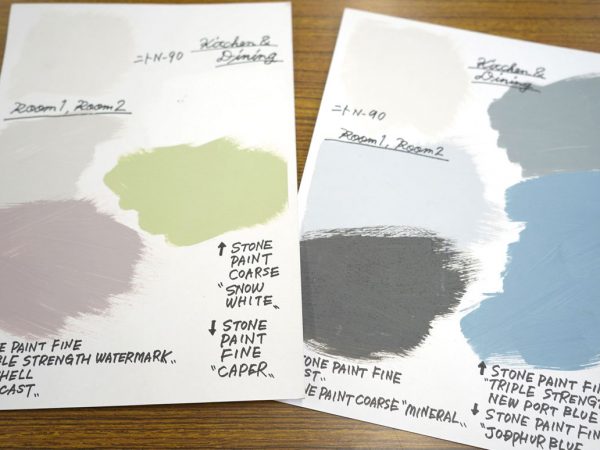 ニトN-90
Kitchen &
Dining
Room 1, Room 2
↑ STONE
PAINT
COARSE
"SNOW
WHITE"
↓ STONE
PAINT
FINE
"CAPER"
PAINT FINE
STRENGTH WATERMARK"
CAST"
Kitchen &
Dining
ニトN-90
Room 1, Room 2
STONE PAINT FINE
PAINT COARSE "MINERAL"
↑ STONE PAINT
"TRIPLE STRENGTH
NEW PORT BLUE
↓ STONE PAINT
"JODPHUR BLUE